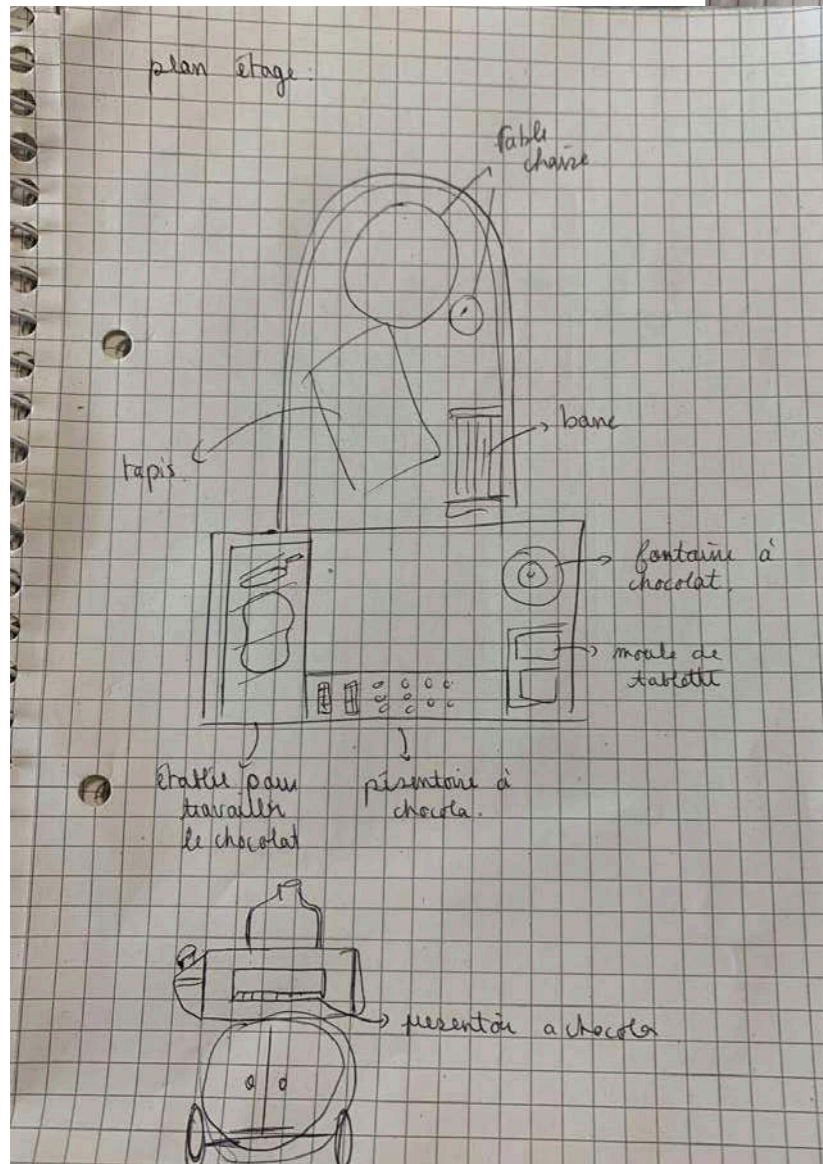 plan étage :
table
chaise
banc
tapis.
fontaine à
chocolat.
moule de
tablette
établie pour
travailler
le chocolat
présentoire à
chocola.
presentoir a chocola